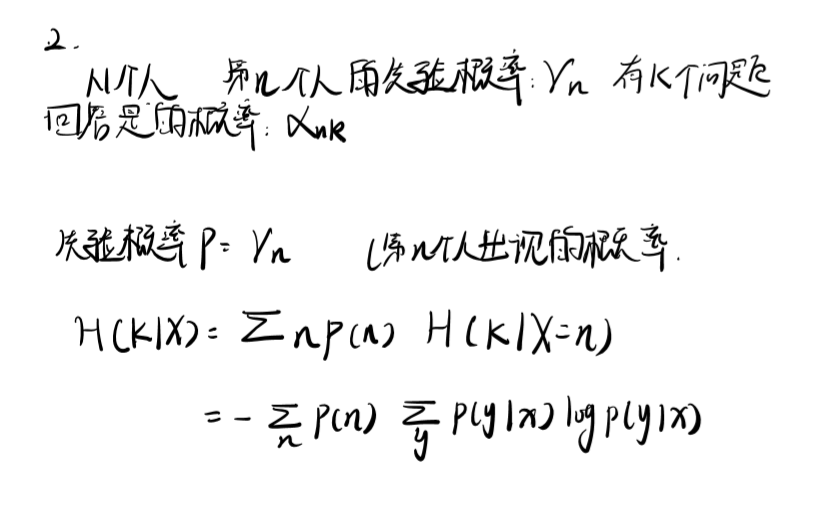 2.
N个人 第n个人的先验概率:γn 有K个问题
回答是的概率:αnk
先验概率 P=γn (第n个人出现的概率.
H(K|X)= Σn p(n) H(K|X=n)
= - Σn P(n) Σy P(y|x) log p(y|x)